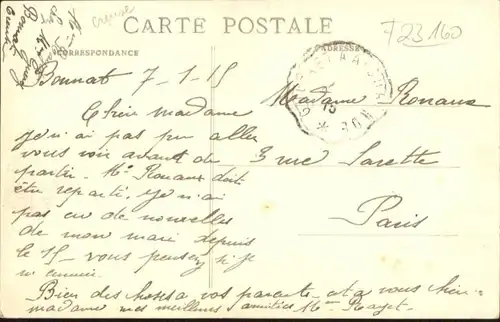 Creuse
CARTE POSTALE
F23160
CORRESPONDANCE
ADRESSE
Bonnat 7-1-15
Chère madame
je n'ai pas pu aller
vous voir avant de
partir. Mr Rouaux doit
être reparti, je n'ai
pas eu de nouvelles
de mon mari depuis
le 15 - vous pensez si je
m'ennuie.
Bien des choses a vos parents et a vous chère
madame mes meilleures amitiés Mme
Madame Rouaux
3 rue Larette
Paris